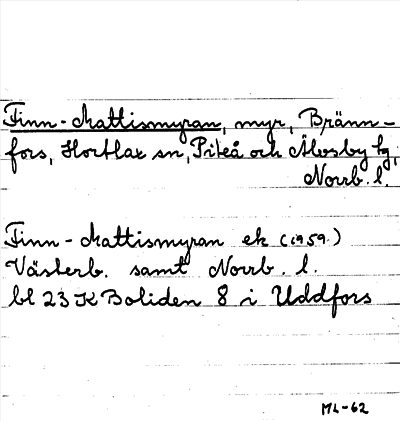 Finn-Mattismyran, myr, Bränn-
fors, Hortlax sn, Piteå och Älvsby tg,
Norrb. l.
Finn-Mattismyran ek (1959.)
Västerb. samt Norrb. l.
bl 23 K Boliden 8 i Uddfors
ML-62